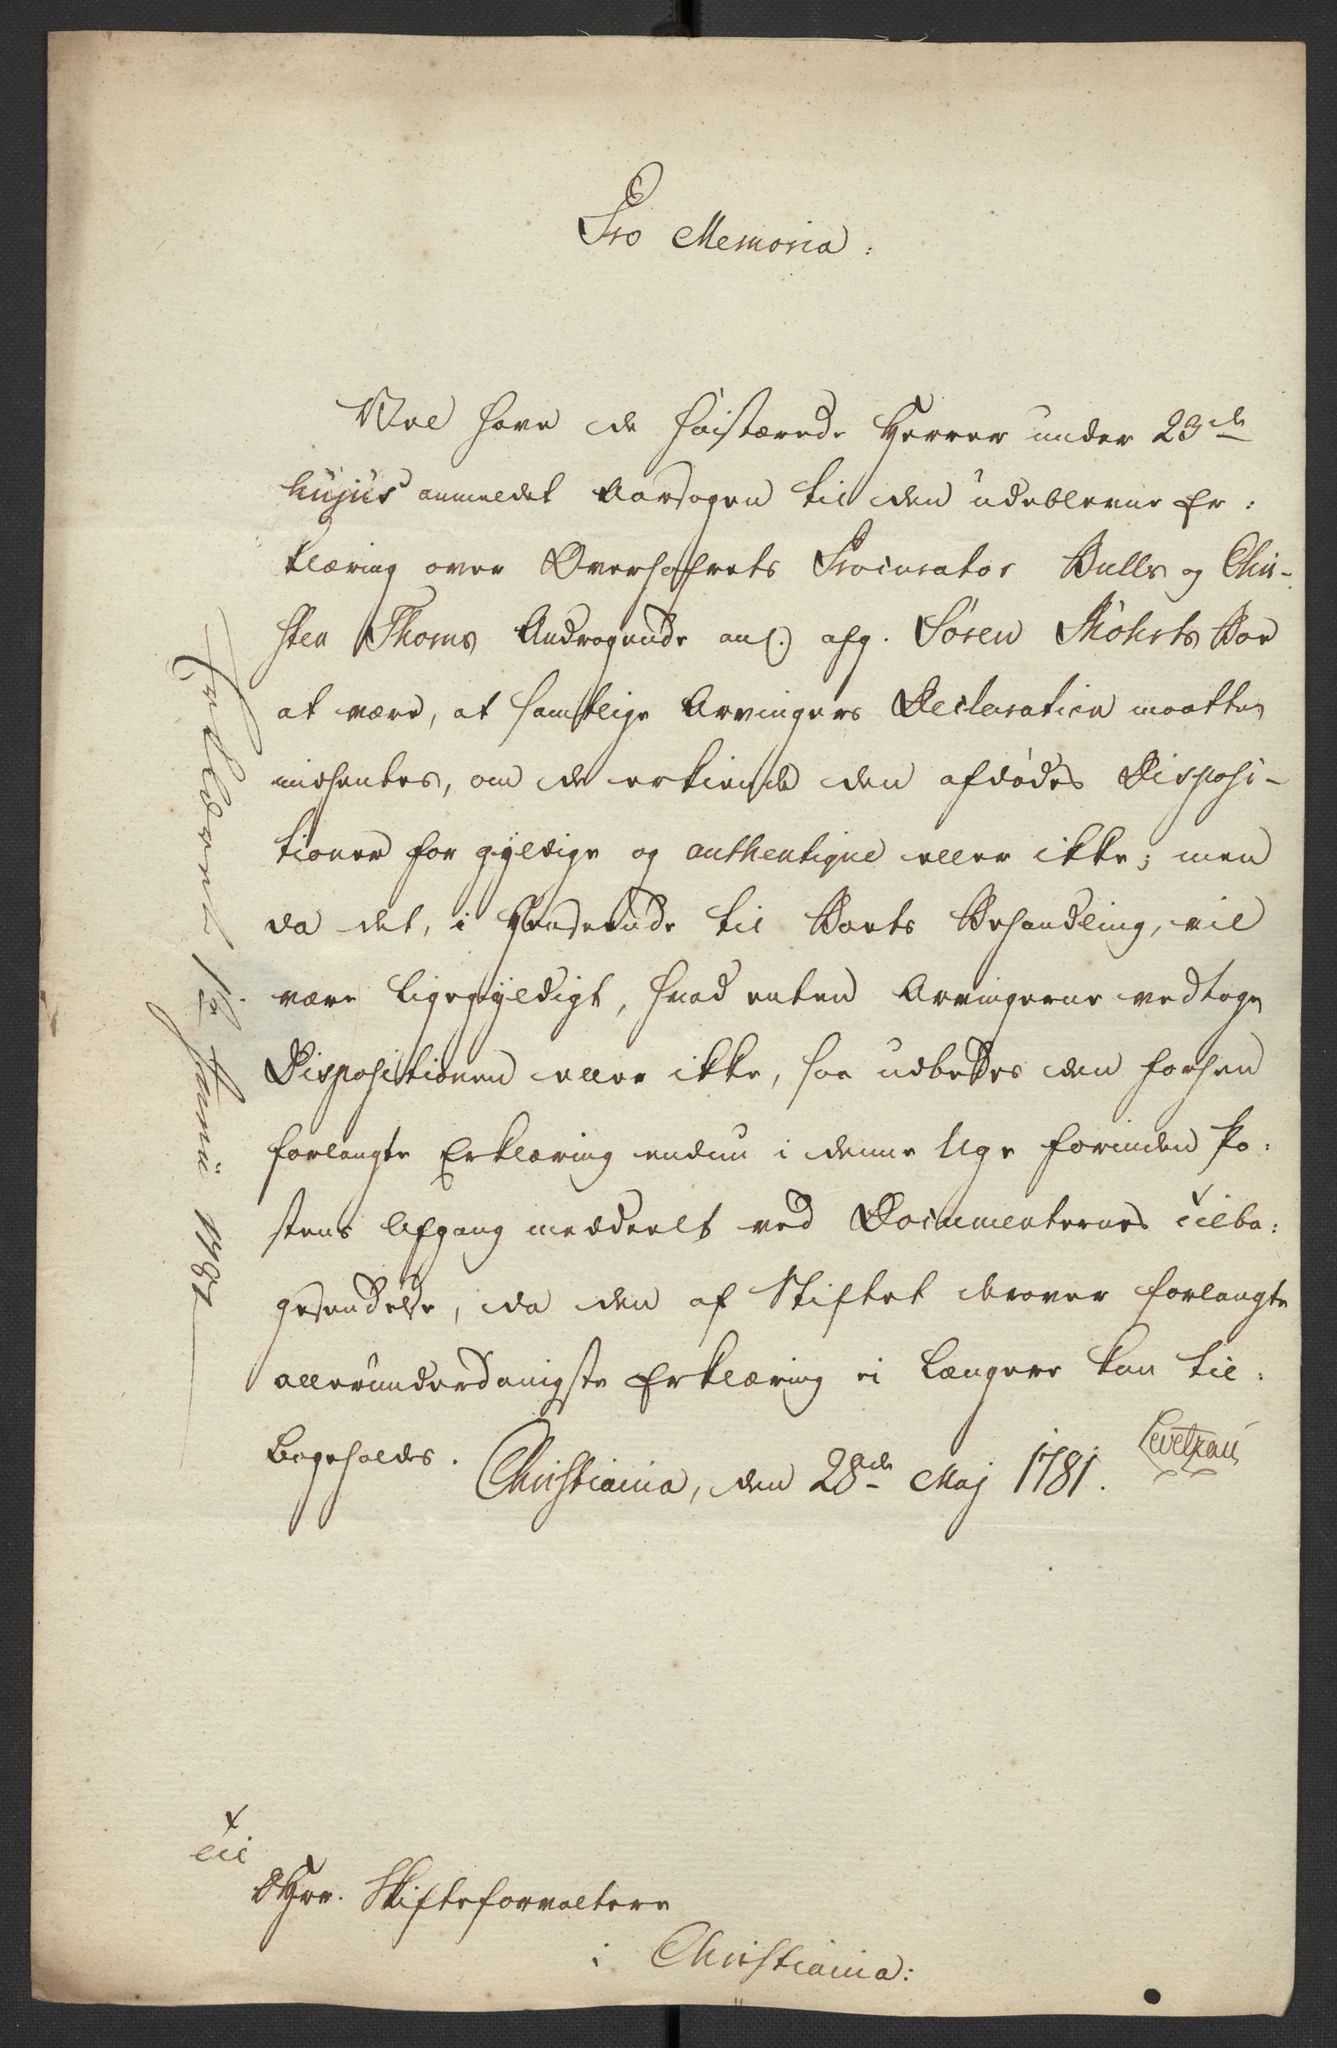 Pro Memoria:
Vel have de høistærede Herrer under 23de
hujus anmeldet Aarsagen til den udeblevne Er:
klæring over Overhofrets Procurator Bulls og Chri-
sten Thorns Andragende anl. afg. Søren Møhrts Boe
at være, at samtlige Arvingers Declaration maatte
indhentes, om de erkiende den afdødes Disposi-
tioner for gyldige og authentique eller ikke; men
da det, i Henseende til Boets Behandling, vil
være ligegyldigt, hvad enten Arvingerne vedtage
Dispositionen eller ikke, saa udbedes den forhen
forlangte Erklæring endnu i denne Uge forinden Po:
stens Afgang meddeelt ved Documenternes tilba:
gesendelse, da den af Stiftet derover forlangte
allerunderdanigste Erklæring ei længere kan til:
bageholdes.
Christiania, den 28de Maj 1781.
Levetzau
Erklæret 1te Junii 1781
til
Hrr. Skifteforvaltere
i Christiania: